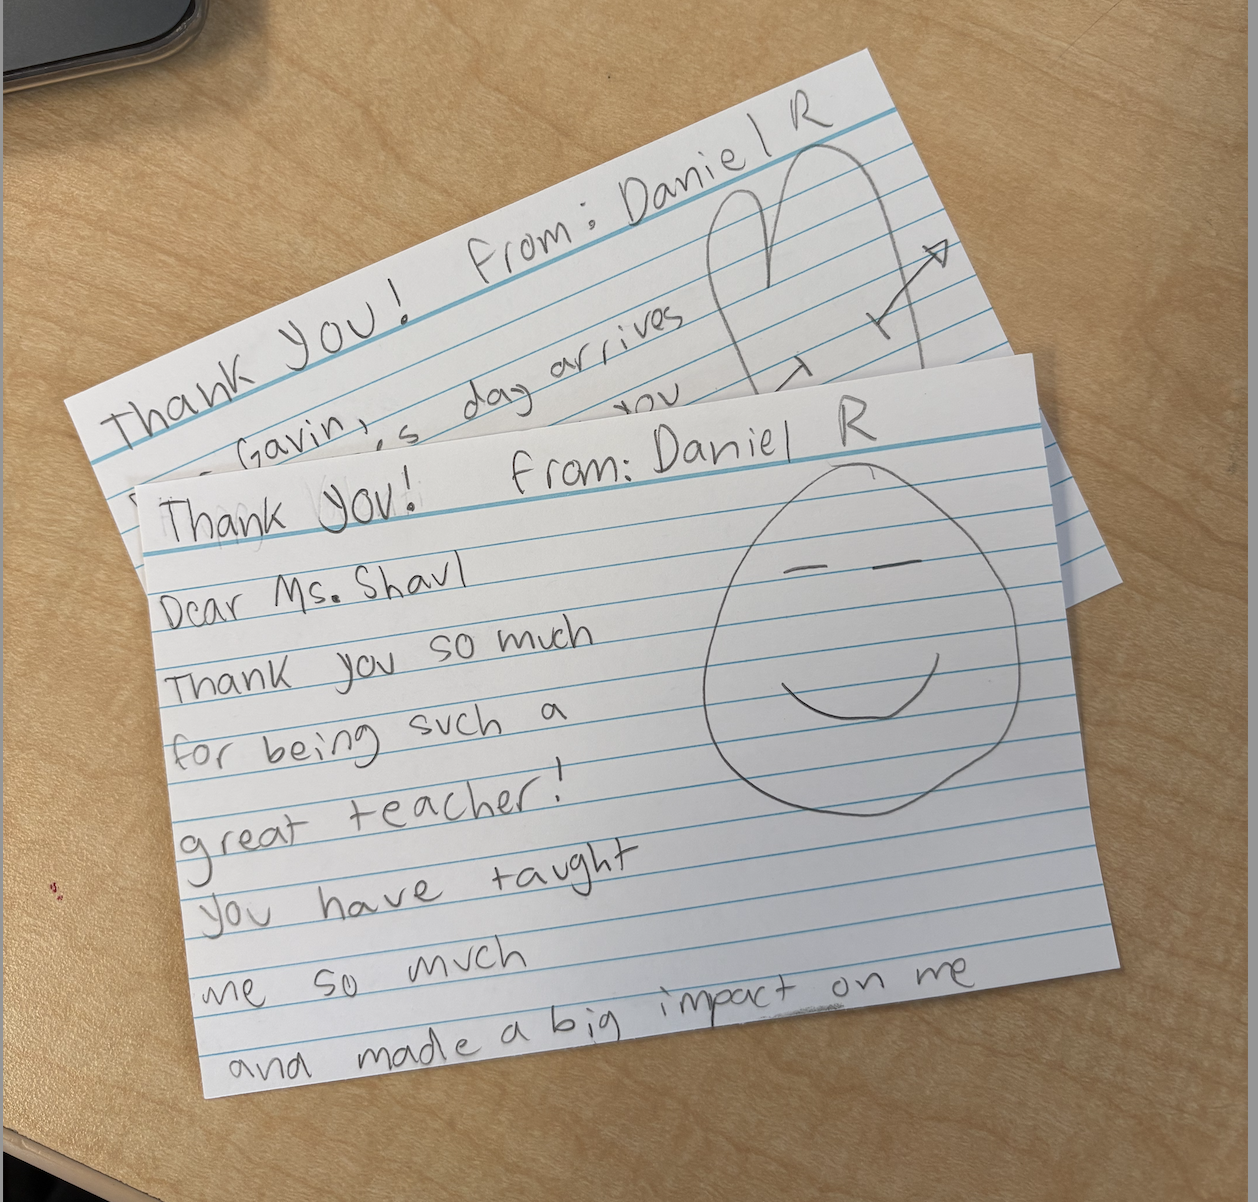 Thank you! From: Daniel R
Gavin,
day arrives
you
Thank you! From: Daniel R
Dear Ms. Shaul
Thank you so much
for being such a
great teacher!
you have taught
me so much
and made a big impact on me